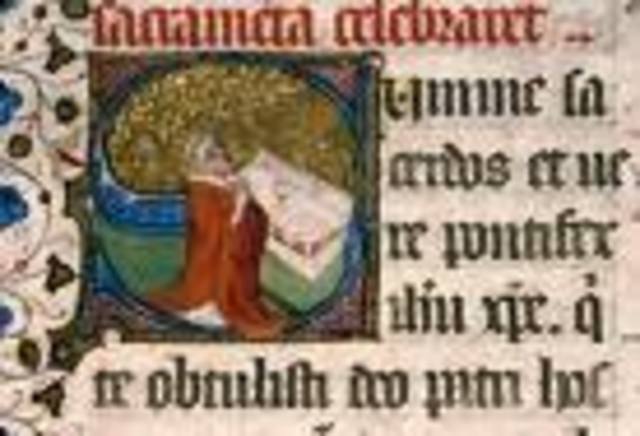 sacramēta celebraret
Summe sa
cerdos et ue
re pontifex
ihu xpe. q
te obtulisti deo patri hos